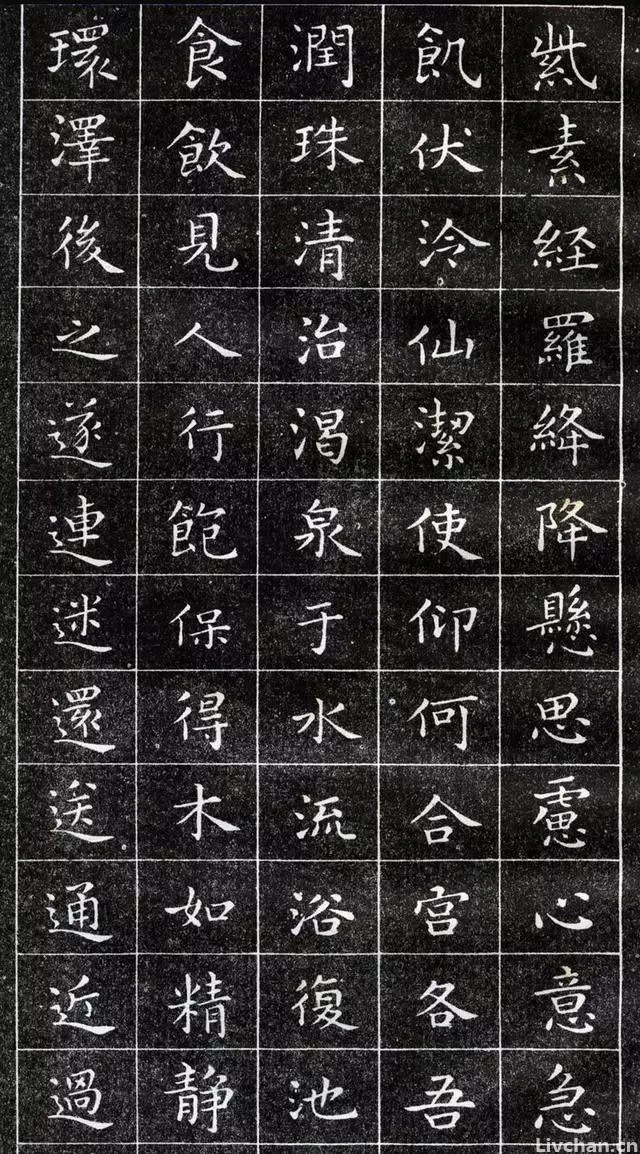 紫素経羅絳降懸思慮心意急
飢伏泠仙潔使仰何合宫各吾
潤珠清治渇泉于水流浴復池
食飲見人行飽保得木如精静
環澤後之遂連迷還送通近過
Livchan.cn